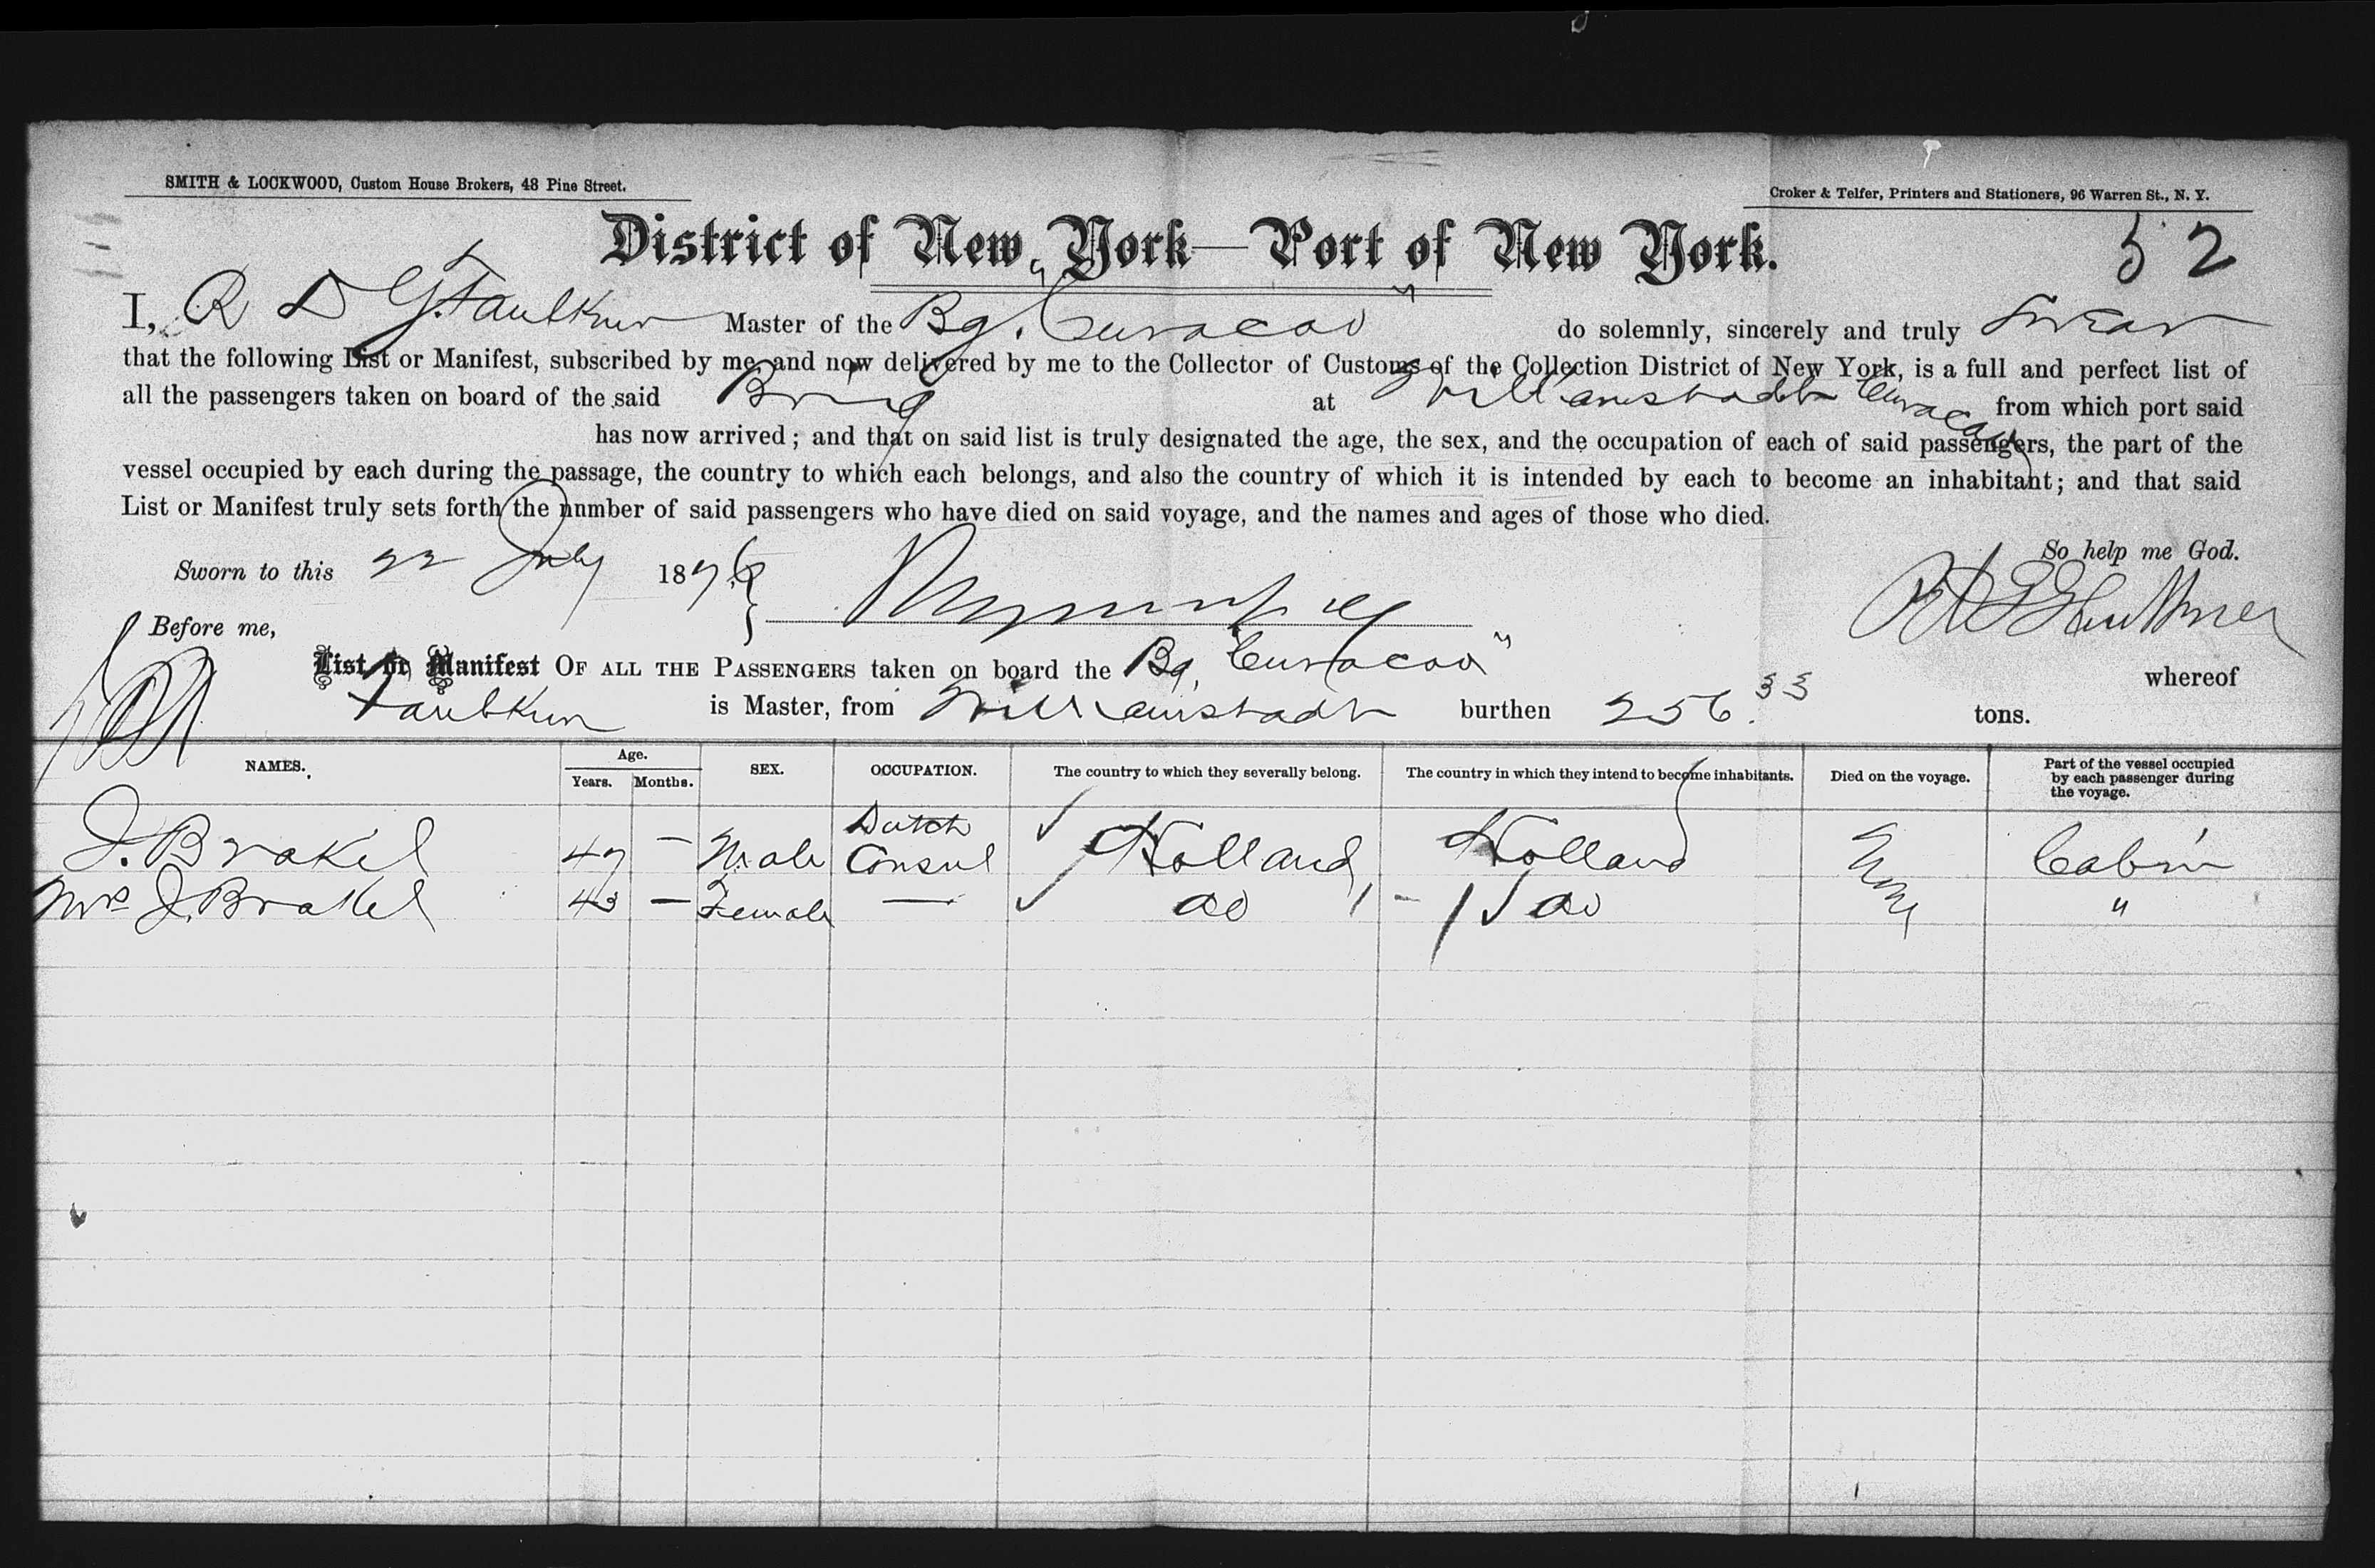 SMITH & LOCKWOOD, Custom House Brokers, 48 Pine Street.
Croker & Telfer, Printers and Stationers, 96 Warren St., N. Y.
District of New York—Port of New York.
52
I, R D G Faulkner Master of the Bg. "Curacao" do solemnly, sincerely and truly swear
that the following List or Manifest, subscribed by me, and now delivered by me to the Collector of Customs of the Collection District of New York, is a full and perfect list of
all the passengers taken on board of the said Brig at Williamstadt Curacao from which port said
has now arrived; and that on said list is truly designated the age, the sex, and the occupation of each of said passengers, the part of the
vessel occupied by each during the passage, the country to which each belongs, and also the country of which it is intended by each to become an inhabitant; and that said
List or Manifest truly sets forth the number of said passengers who have died on said voyage, and the names and ages of those who died.
So help me God.
Sworn to this 22 July 1876
R D G Faulkner
Before me,
List or Manifest OF ALL THE PASSENGERS taken on board the Bg. "Curacao" whereof
Faulkner is Master, from Williamstadt burthen 256.33 tons.
NAMES. Age. Years. Months. SEX. OCCUPATION. The country to which they severally belong. The country in which they intend to become inhabitants. Died on the voyage. Part of the vessel occupied by each passenger during the voyage.
J. Brakel 47 — Male Dutch Consul Holland Holland None Cabin
Mrs J. Brakel 43 — Female — do do "